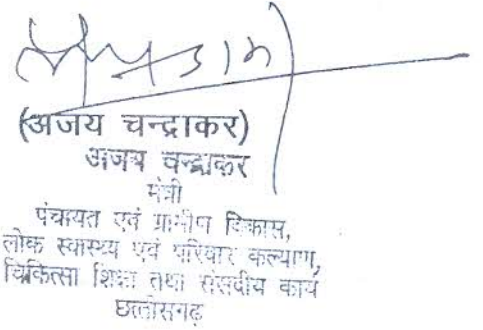 (अजय चन्द्राकर)
अजय चन्द्राकर
मंत्री
पंचायत एवं ग्रामीण विकास,
लोक स्वास्थ्य एवं परिवार कल्याण,
चिकित्सा शिक्षा तथा संसदीय कार्य
छत्तीसगढ़